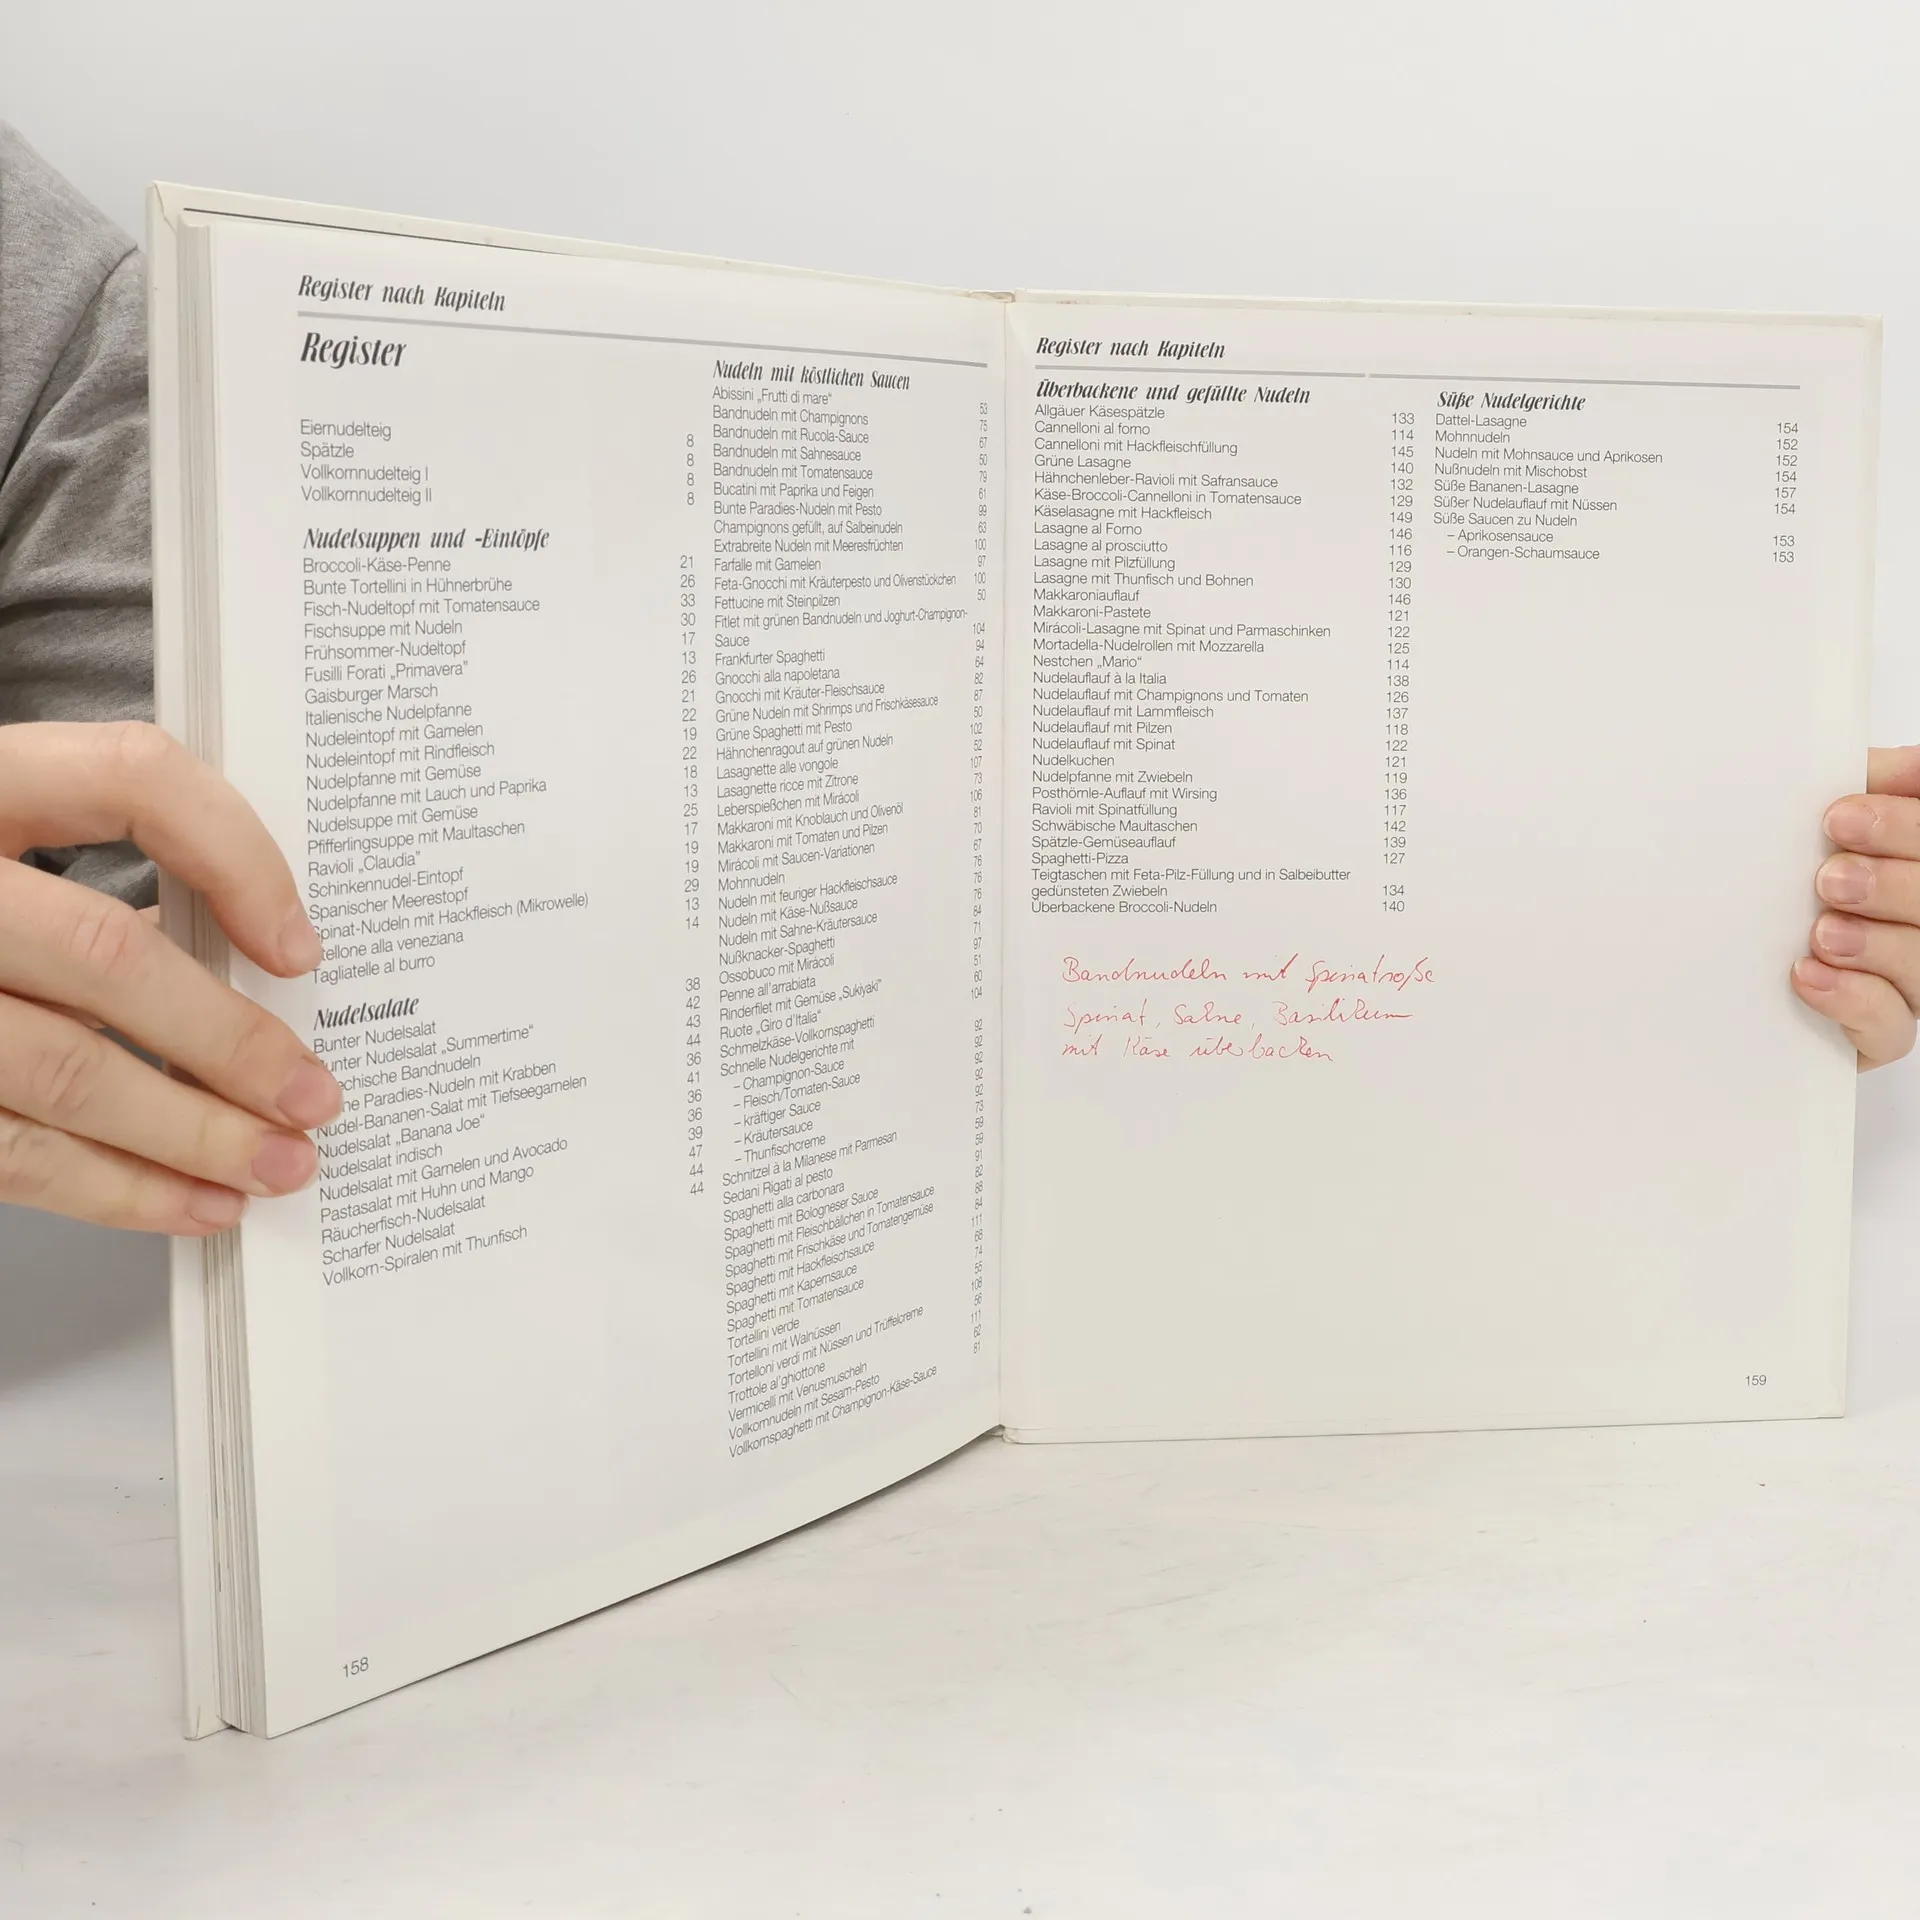 Register nach Kapiteln
Register
Eiernudelteig 8
Spätzle 8
Vollkornnudelteig I 8
Vollkornnudelteig II 8
Nudelsuppen und -Eintöpfe
Broccoli-Käse-Penne 21
Bunte Tortellini in Hühnerbrühe 26
Fisch-Nudeltopf mit Tomatensauce 33
Fischsuppe mit Nudeln 30
Frühsommer-Nudeltopf 17
Fusilli Forati „Primavera“ 13
Gaisburger Marsch 26
Italienische Nudelpfanne 21
Nudeleintopf mit Garnelen 22
Nudeleintopf mit Rindfleisch 19
Nudelpfanne mit Gemüse 22
Nudelpfanne mit Lauch und Paprika 18
Nudelsuppe mit Gemüse 13
Pfifferlingsuppe mit Maultaschen 25
Ravioli „Claudia“ 17
Schinkennudel-Eintopf 19
Spanischer Meerestopf 19
Spinat-Nudeln mit Hackfleisch (Mikrowelle) 29
tellone alla veneziana 13
Tagliatelle al burro 14
Nudelsalate
Bunter Nudelsalat 38
unter Nudelsalat „Summertime“ 42
echische Bandnudeln 43
ne Paradies-Nudeln mit Krabben 44
Nudel-Bananen-Salat mit Tiefseegarnelen 36
Nudelsalat „Banana Joe“ 41
Nudelsalat indisch 36
Nudelsalat mit Garnelen und Avocado 36
Pastasalat mit Huhn und Mango 39
Räucherfisch-Nudelsalat 47
Scharfer Nudelsalat 44
Vollkorn-Spiralen mit Thunfisch 44
158
Nudeln mit köstlichen Saucen
Abissini „Frutti di mare“ 53
Bandnudeln mit Champignons 75
Bandnudeln mit Rucola-Sauce 67
Bandnudeln mit Sahnesauce 50
Bandnudeln mit Tomatensauce 79
Bucatini mit Paprika und Feigen 61
Bunte Paradies-Nudeln mit Pesto 99
Champignons gefüllt, auf Salbeinudeln 63
Extrabreite Nudeln mit Meeresfrüchten 100
Farfalle mit Garnelen 97
Feta-Gnocchi mit Kräuterpesto und Olivenstückchen 100
Fettucine mit Steinpilzen 50
Fitlet mit grünen Bandnudeln und Joghurt-Champignon-
Sauce 104
Frankfurter Spaghetti 94
Gnocchi alla napoletana 64
Gnocchi mit Kräuter-Fleischsauce 82
Grüne Nudeln mit Shrimps und Frischkäsesauce 87
Grüne Spaghetti mit Pesto 50
Hähnchenragout auf grünen Nudeln 102
Lasagnette alle vongole 52
Lasagnette ricce mit Zitrone 107
Leberspießchen mit Mirácoli 73
Makkaroni mit Knoblauch und Olivenöl 106
Makkaroni mit Tomaten und Pilzen 81
Mirácoli mit Saucen-Variationen 70
Mohnnudeln 67
Nudeln mit feuriger Hackfleischsauce 76
Nudeln mit Käse-Nußsauce 76
Nudeln mit Sahne-Kräutersauce 76
Nußknacker-Spaghetti 84
Ossobuco mit Mirácoli 71
Penne all'arrabiata 97
Rinderfilet mit Gemüse „Sukiyaki“ 51
Ruote „Giro d'Italia“ 60
Schmelzkäse-Vollkornspaghetti 104
Schnelle Nudelgerichte mit
– Champignon-Sauce 92
– Fleisch/Tomaten-Sauce 92
– kräftiger Sauce 92
– Kräutersauce 92
– Thunfischcreme 92
Schnitzel à la Milanese mit Parmesan 73
Sedani Rigati al pesto 59
Spaghetti alla carbonara 59
Spaghetti mit Bologneser Sauce 91
Spaghetti mit Fleischbällchen in Tomatensauce 82
Spaghetti mit Frischkäse und Tomatengemüse 88
Spaghetti mit Hackfleischsauce 84
Spaghetti mit Kapernsauce 111
Spaghetti mit Tomatensauce 68
Tortellini verde 74
Tortellini mit Walnüssen 55
Tortelloni verdi mit Nüssen und Trüffelcreme 108
Trottole al'ghiottone 56
Vermicelli mit Venusmuscheln 111
Vollkornnudeln mit Sesam-Pesto 62
Vollkornspaghetti mit Champignon-Käse-Sauce 81
Register nach Kapiteln
Überbackene und gefüllte Nudeln
Allgäuer Käsespätzle 133
Cannelloni al forno 114
Cannelloni mit Hackfleischfüllung 145
Grüne Lasagne 140
Hähnchenleber-Ravioli mit Safransauce 132
Käse-Broccoli-Cannelloni in Tomatensauce 129
Käselasagne mit Hackfleisch 149
Lasagne al Forno 146
Lasagne al prosciutto 116
Lasagne mit Pilzfüllung 129
Lasagne mit Thunfisch und Bohnen 130
Makkaroniauflauf 146
Makkaroni-Pastete 121
Mirácoli-Lasagne mit Spinat und Parmaschinken 122
Mortadella-Nudelrollen mit Mozzarella 125
Nestchen „Mario“ 114
Nudelauflauf à la Italia 138
Nudelauflauf mit Champignons und Tomaten 126
Nudelauflauf mit Lammfleisch 137
Nudelauflauf mit Pilzen 118
Nudelauflauf mit Spinat 122
Nudelkuchen 121
Nudelpfanne mit Zwiebeln 119
Posthörnle-Auflauf mit Wirsing 136
Ravioli mit Spinatfüllung 117
Schwäbische Maultaschen 142
Spätzle-Gemüseauflauf 139
Spaghetti-Pizza 127
Teigtaschen mit Feta-Pilz-Füllung und in Salbeibutter
gedünsteten Zwiebeln 134
Überbackene Broccoli-Nudeln 140
Bandnudeln mit Spinatsoße
Spinat, Sahne, Basilikum
mit Käse überbacken
Süße Nudelgerichte
Dattel-Lasagne 154
Mohnnudeln 152
Nudeln mit Mohnsauce und Aprikosen 152
Nußnudeln mit Mischobst 154
Süße Bananen-Lasagne 157
Süßer Nudelauflauf mit Nüssen 154
Süße Saucen zu Nudeln
– Aprikosensauce 153
– Orangen-Schaumsauce 153
159